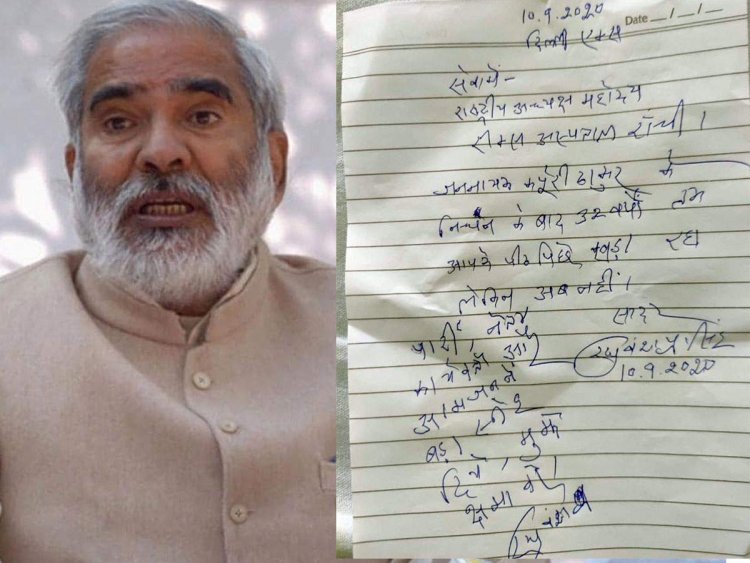 10.9.2020
Date __/__/__
दिल्ली एम्स
सेवामें-
राष्ट्रीय अध्यक्ष महोदय
रीम्स अस्पताल राँची।
जननायक कर्पूरी ठाकुर के
निधन के बाद 32 वर्षों तक
आपके पीठ पिछे खड़ा रहा
लेकिन अब नहीं।
सादर
पार्टी, नेता
रघुवंश प्रसाद सिंह
कार्यकर्ता और
10.9.2020
आमजन ने
बड़ा स्नेह
दिया, मुझे
क्षमा करें।
रघुवंश